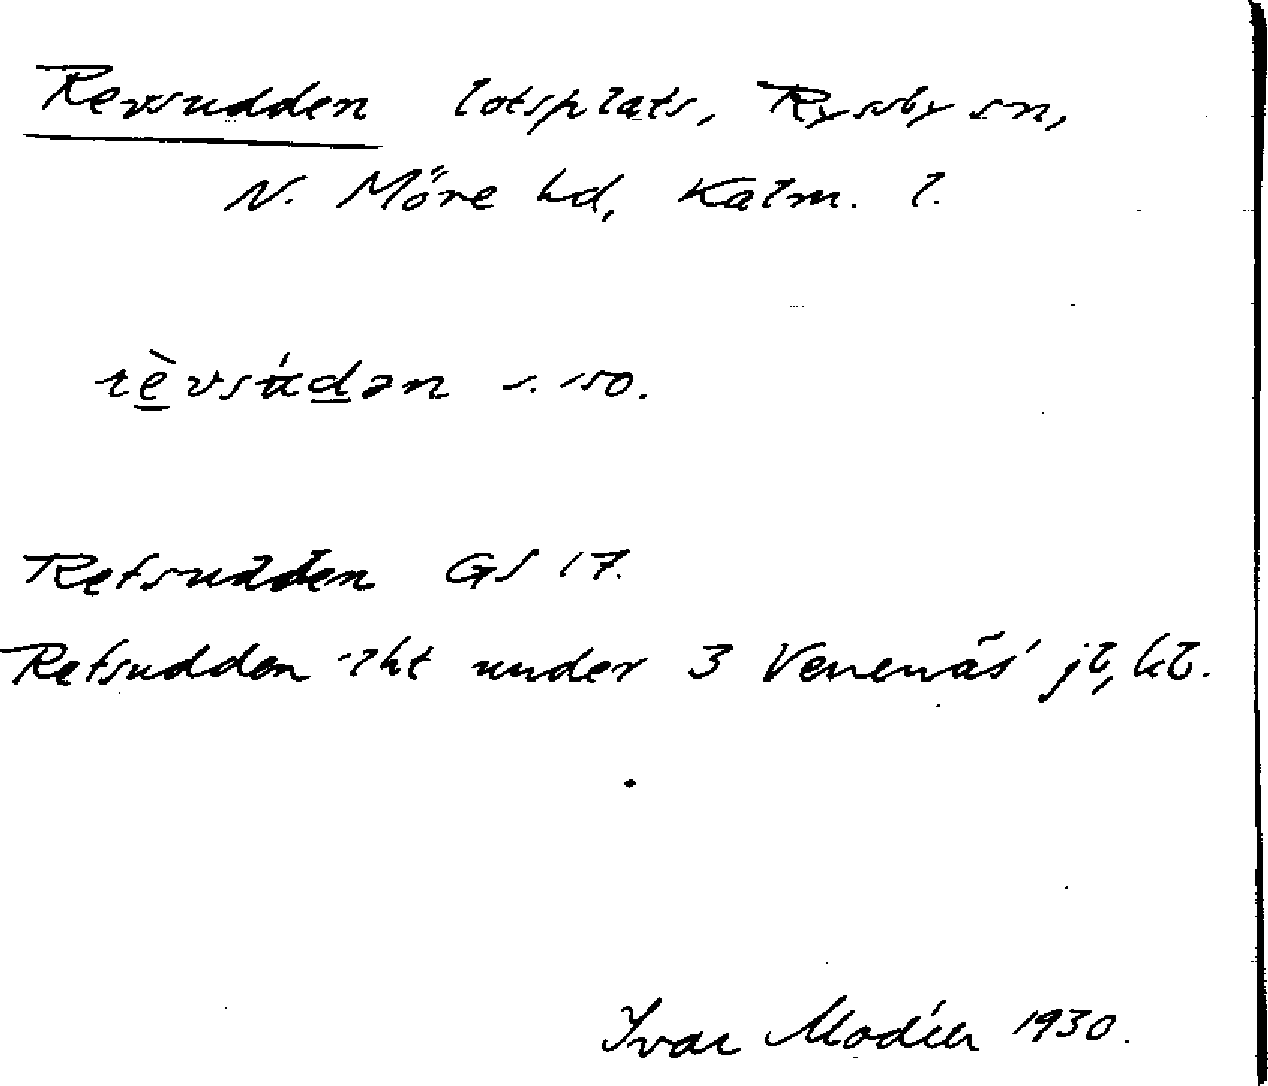 Revsudden lotsplats, Ryssby sn,
N. Möre hd, Kalm. l.
rèvsúdən s. 150.
Refsudden GS 17.
Refsudden lht under 3 Venenäs jb, kb.
Ivar Modéer 1930.